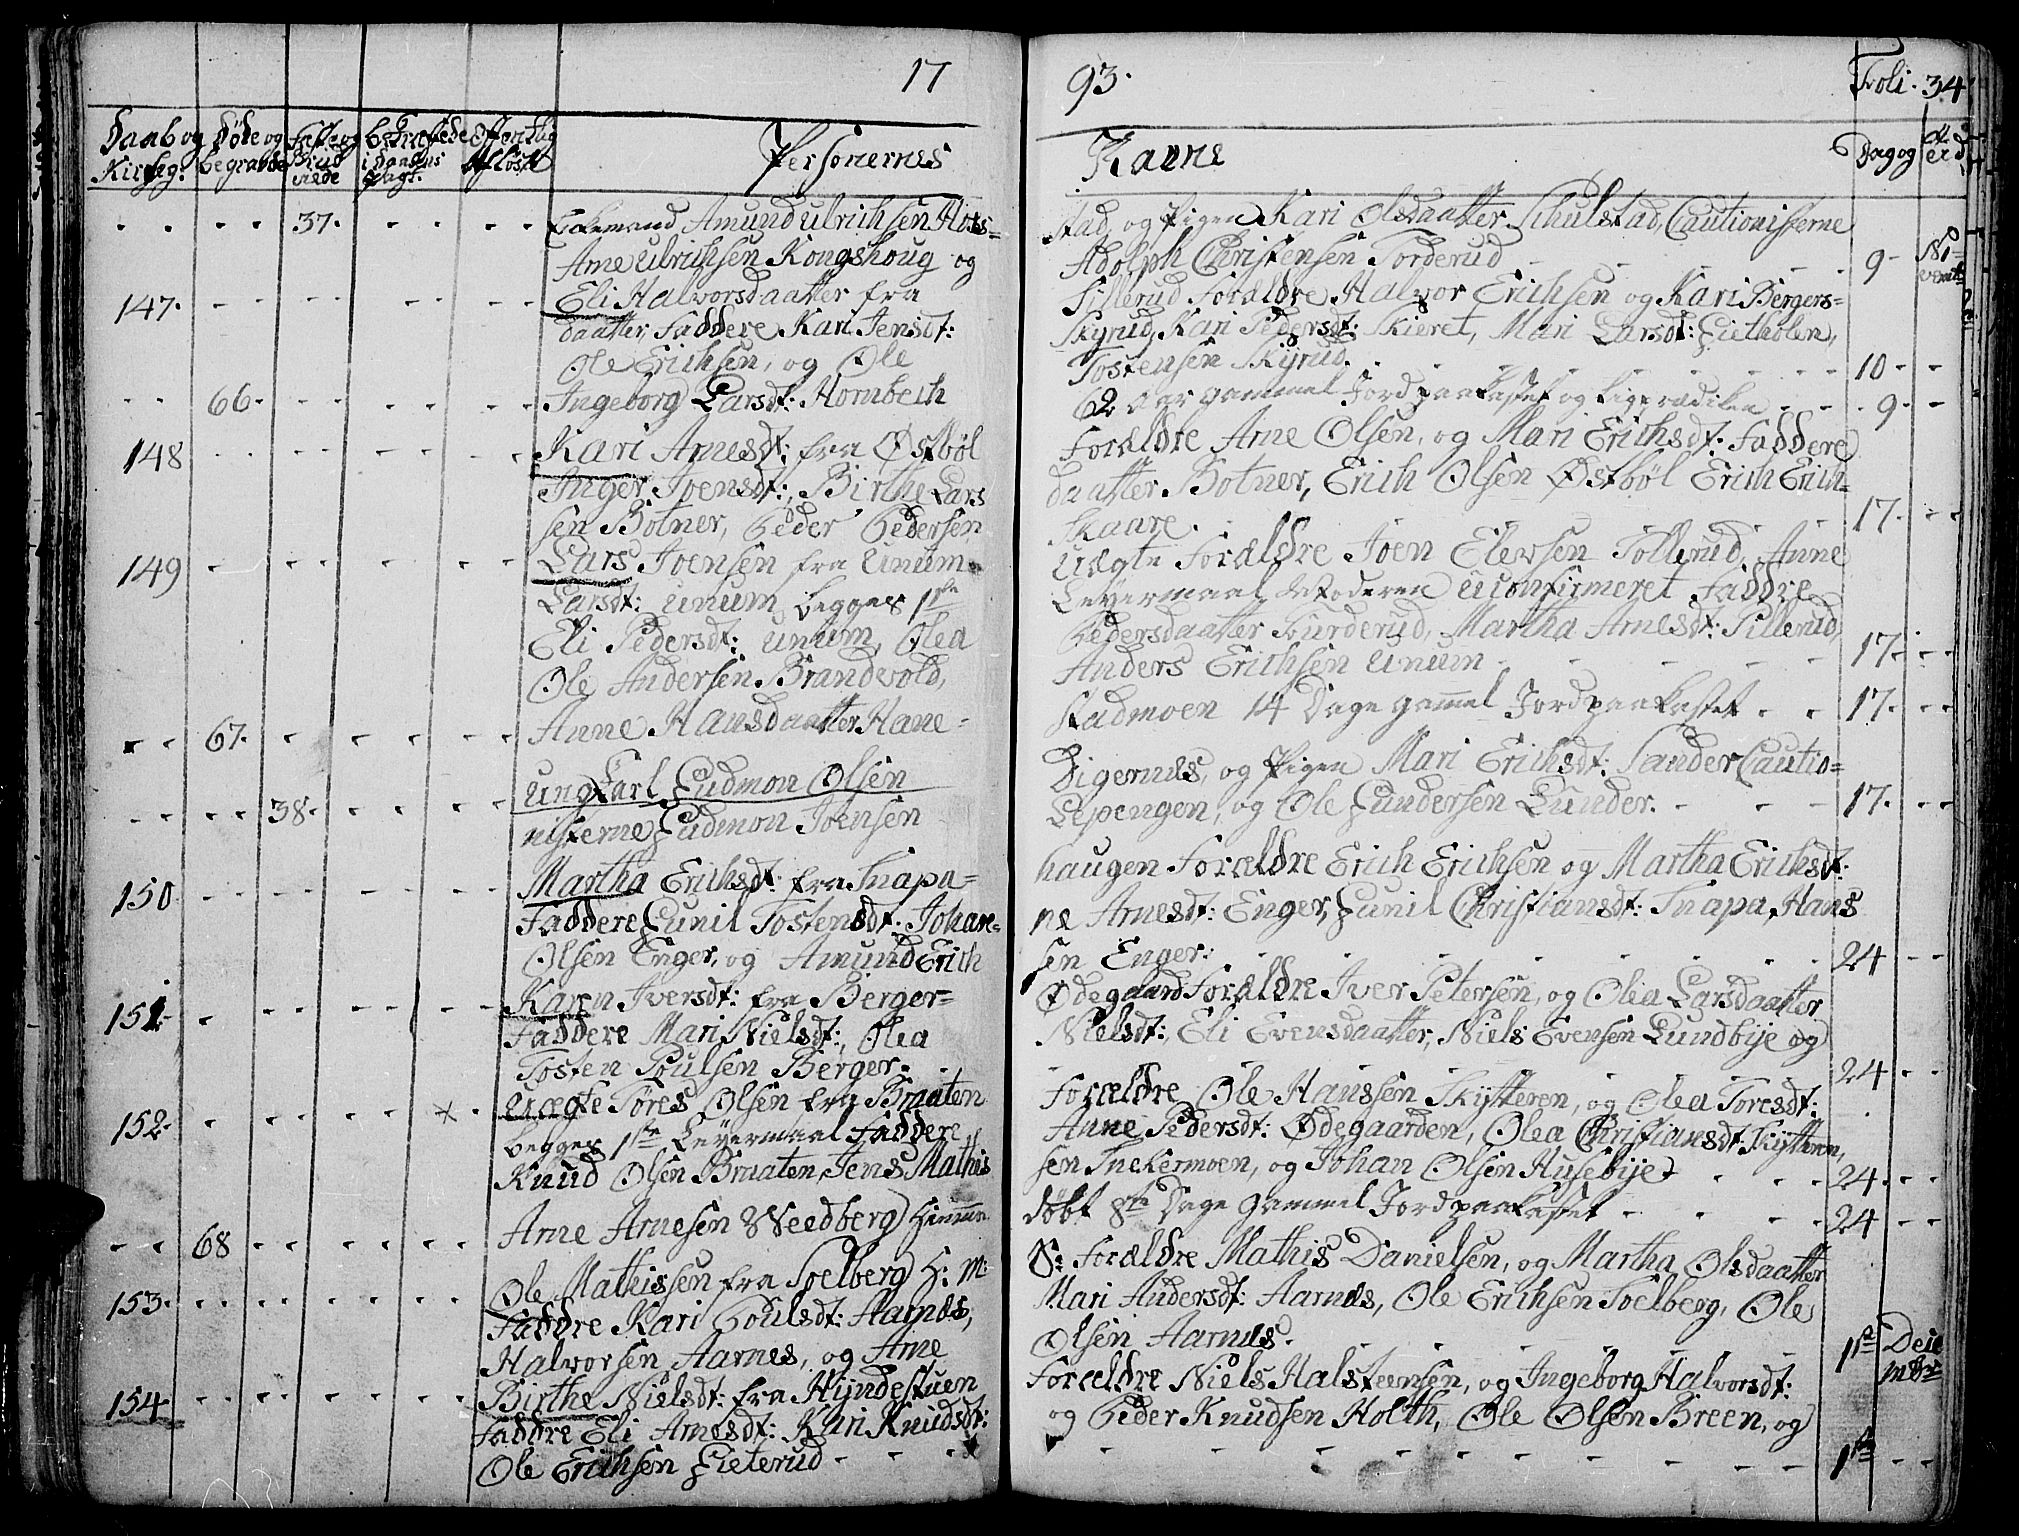 17
Daab og Døde og Feste og
Kirkeg. begravede
Personernes
37. Enkemand Amund Ulrichsen Hols=
Arne Ulrichsen Kongshoug og
147. Eli Halvorsdaatter fra
daatter, Faddere Kari Jensdt:
Ole Erichsen, og Ole
66. Ingeborg Larsdt: Hornbech
148 Kari Arnesdt: fra Østbøl
Inger Joensdt:, Birthe Lars
sen Botner, Peder Pedersen
149 Lars Joensen fra Unum.
Larsdt: Unum, begges 1ste
Eli Pedersdt: Unum, Olea
Ole Andersen Brandvold,
67. Anne Hansdaatter Hane=
Ung Karl Gudmon Olsen
38. nisterne Gudmon Joensen
150 Martha Erichsdt: fra Snapa=
Faddere Gunil Tostensdt: Johan=
Olsen Enger, og Amund Erich
151. Karen Iversdt: fra Berger=
Faddere Mari Nielsdt:, Olea
Tosten Poulsen Berger.
152. Uægte Tøres Olsen fra Braaten
begges 1ste Leyermaal Faddere
Knud Olsen Braaten, Jens Mathis
68 Arne Arnesen Weedberg hiemme
153. Ole Mathissen fra Soelberg H: M:
Faddre Kari Poulsdt: Aarnes,
Halvorsen Aarnes, og Arne
154. Birthe Nielsdt: fra Hyndestuen
Faddre Eli Arnesdt: Kari Knudsdt:
Ole Erichsen Gieterud
93. Foli. 34
Navne Dag og
stad, og Pigen Kari Olsdaatter Schulstad, Cautionisterne
Adolph Christensen Torderud 9
Sillerud Forældre Halvor Erichsen og Kari Bergers=
Skyrud, Kari Pedersdt: Skieret, Mari Larsdt: Gietholen,
Tostensen Skyrud. 10
Aar gammel Jordpaakastet og 9.
Forældre Arne Olsen, og Mari Erichsdt: Faddere
daatter Botner, Erich Olsen Østbøl Erich Erich=
Skaare. 17.
Uægte Forældre Joen Elevsen Sollerud, Anne
Leyermaal Moderen uconfirmeret Faddre
Pedersdaatter Furderud, Martha Arnesdt: Sillerud,
Anders Erichsen Unum 17.
stadmoen 14 Dage gammel Jordpaakastet 17.
Digernes, og Pigen Mari Erichsdt: Sander Cautio=
Lepengen, og Ole Gundersen Lunder. 17.
haugen Forældre Erich Erichsen og Martha Erichsdt:
ne Arnesdt: Enger, Gunil Christiansdt: Snapa, Hans
sen Enger: 24
Ødegaard Forældre Iver Petersen, og Olea Larsdaatter
Nielsdt:, Eli Evensdaatter, Niels Evensen Lundbye og
24
Forældre Ole Hanssen Skytteren, og Olea Toresdt:
Anne Pedersdt: Ødegaarden, Olea Christiansdt: Skytteren,
sen Snekermoen, og Johan Olsen Husebye 24.
døbt 8te Dage gammel Jordpaakastet 24
Sr. Forældre Mathis Danielsen, og Martha Olsdaatter
Mari Andersdt: Aarnes, Ole Erichsen Soelberg, Ole
Olsen Aarnes. 1ste Dece
mbr
Forældre Niels Halsteensen, og Ingeborg Halvorsdt:
og Peder Knudsen Holth, Ole Olsen Breen, og
1ste